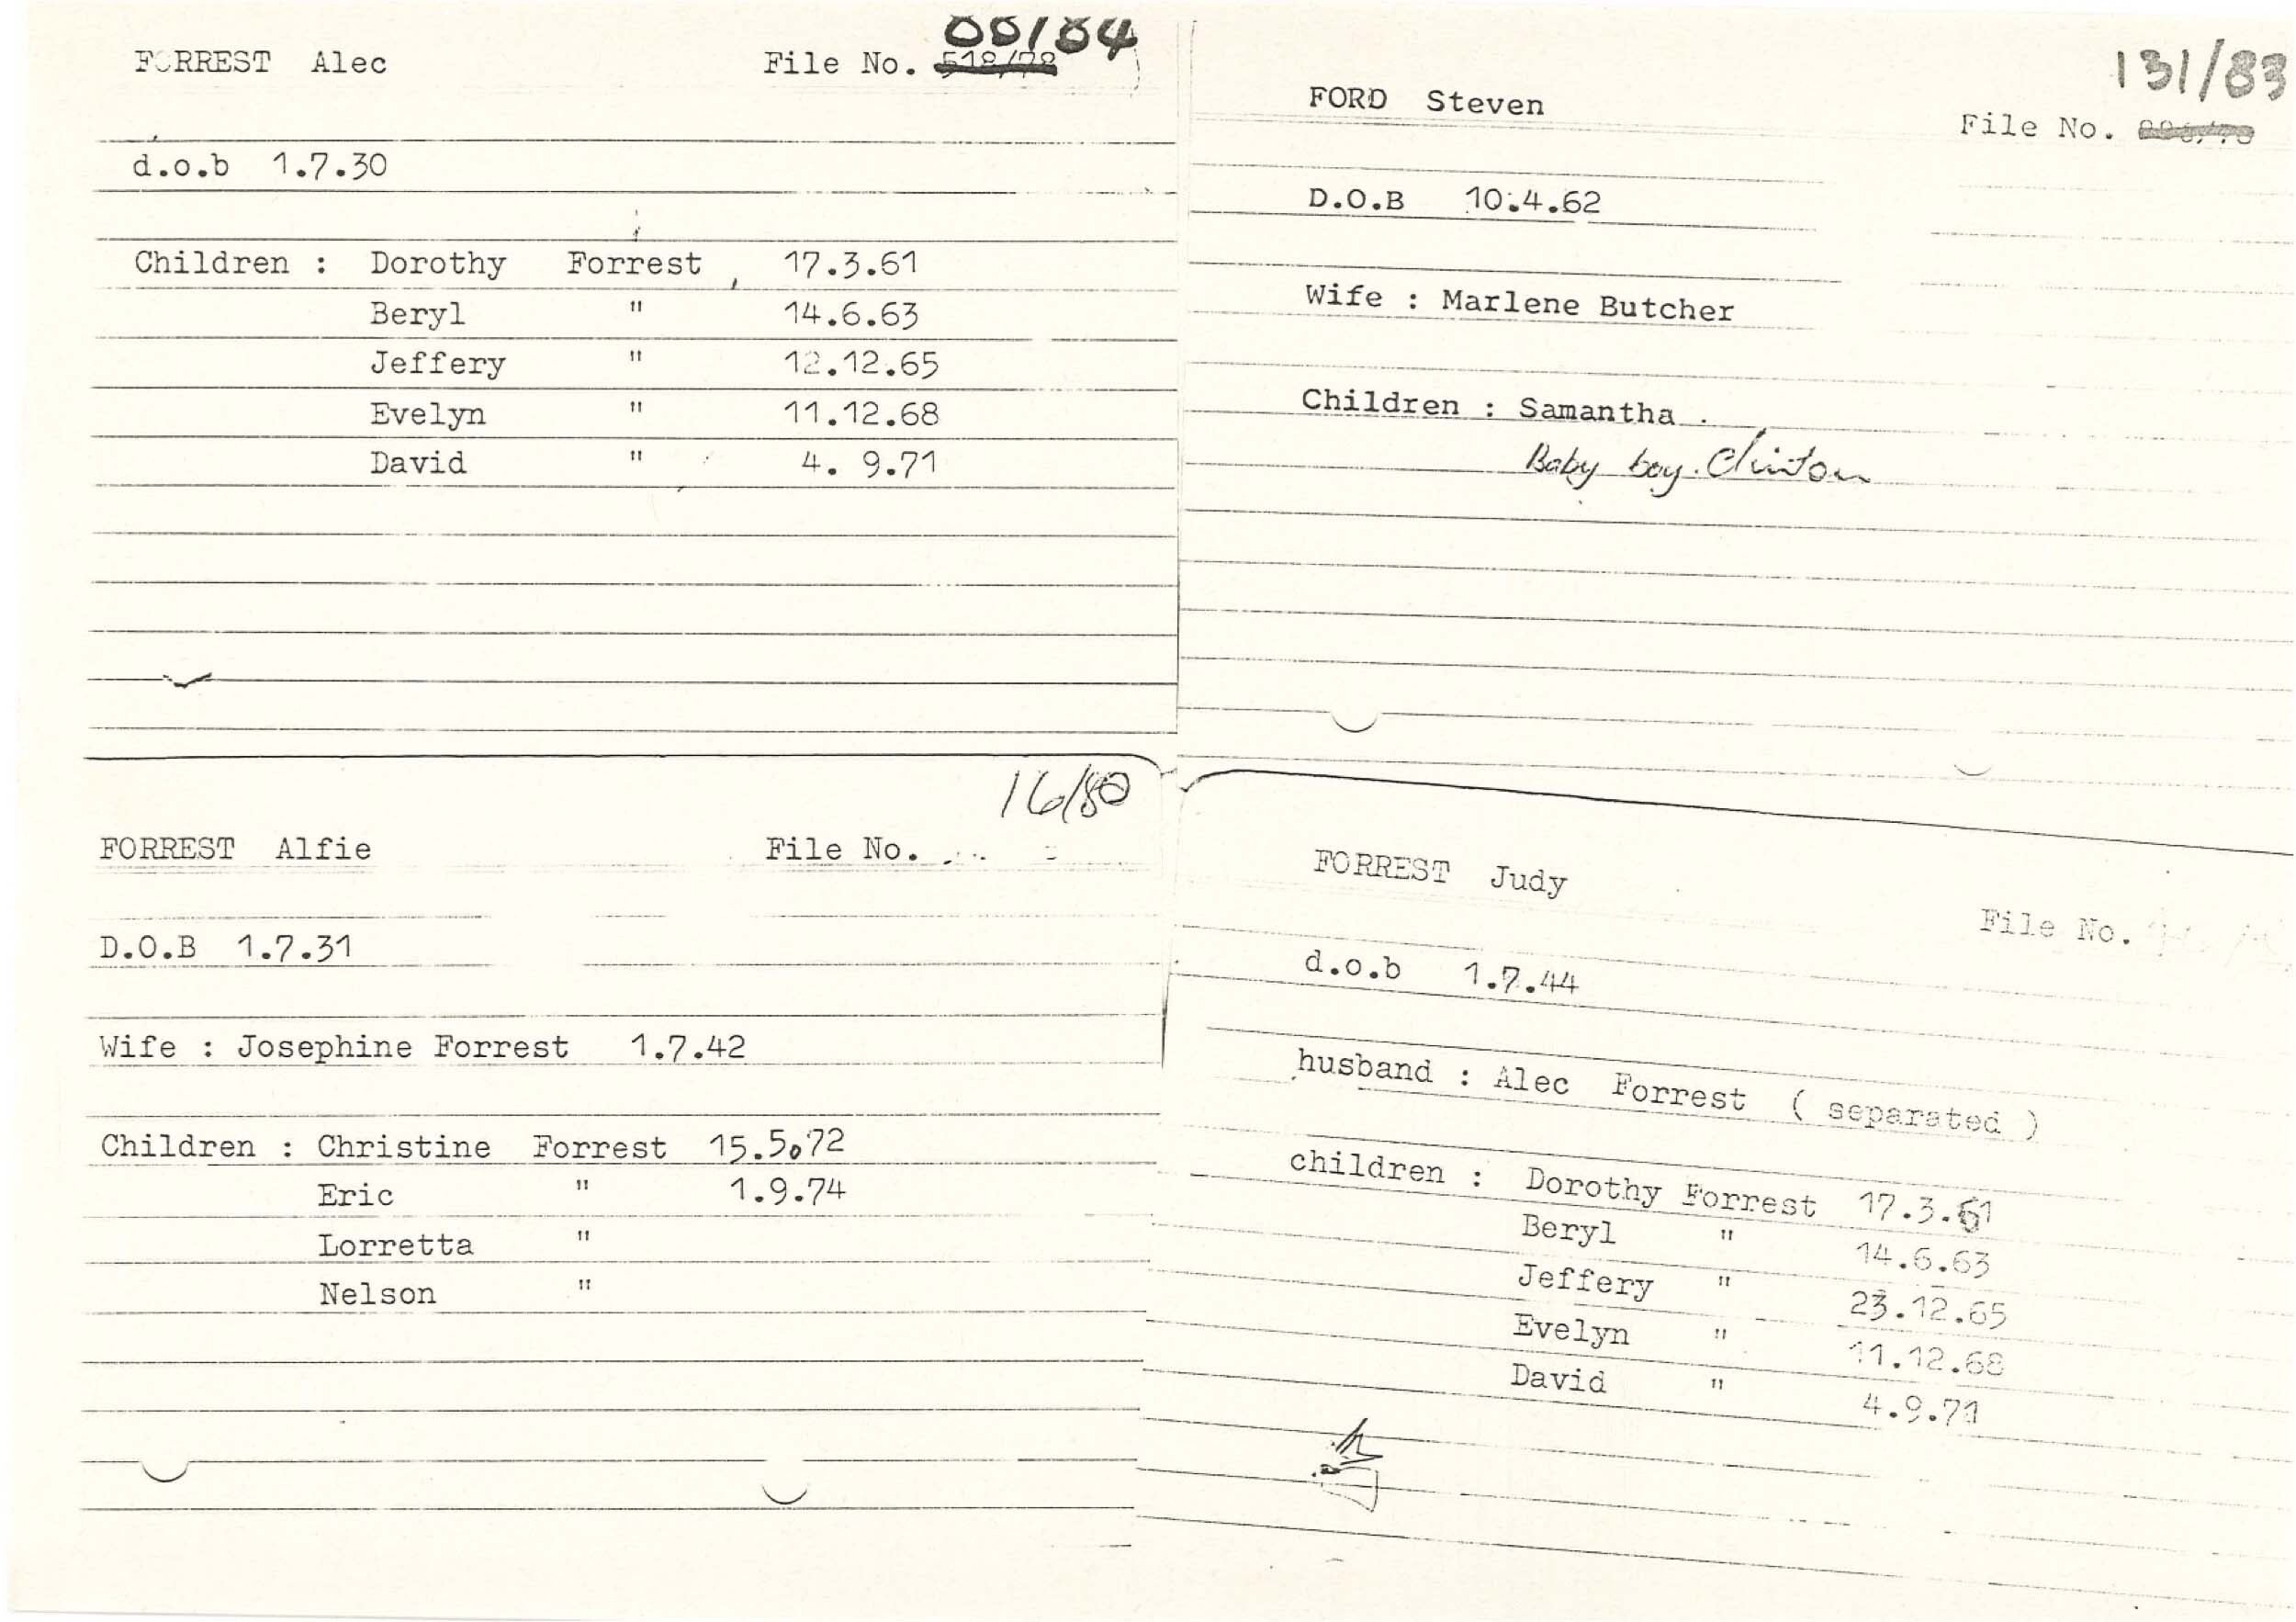 FORREST Alec File No. 518/78
d.o.b 1.7.30
Children : Dorothy Forrest 17.3.61
Beryl " 14.6.63
Jeffery " 12.12.65
Evelyn " 11.12.68
David " 4. 9.71
131/83
FORD Steven File No.
D.O.B 10.4.62
Wife : Marlene Butcher
Children : Samantha .
Baby boy. Clinton
16/80
FORREST Alfie File No.
D.O.B 1.7.31
Wife : Josephine Forrest 1.7.42
Children : Christine Forrest 15.5.72
Eric " 1.9.74
Lorretta "
Nelson "
FORREST Judy File No.
d.o.b 1.7.44
husband : Alec Forrest ( separated )
children : Dorothy Forrest 17.3.61
Beryl " 14.6.63
Jeffery " 23.12.65
Evelyn " 11.12.68
David " 4.9.71